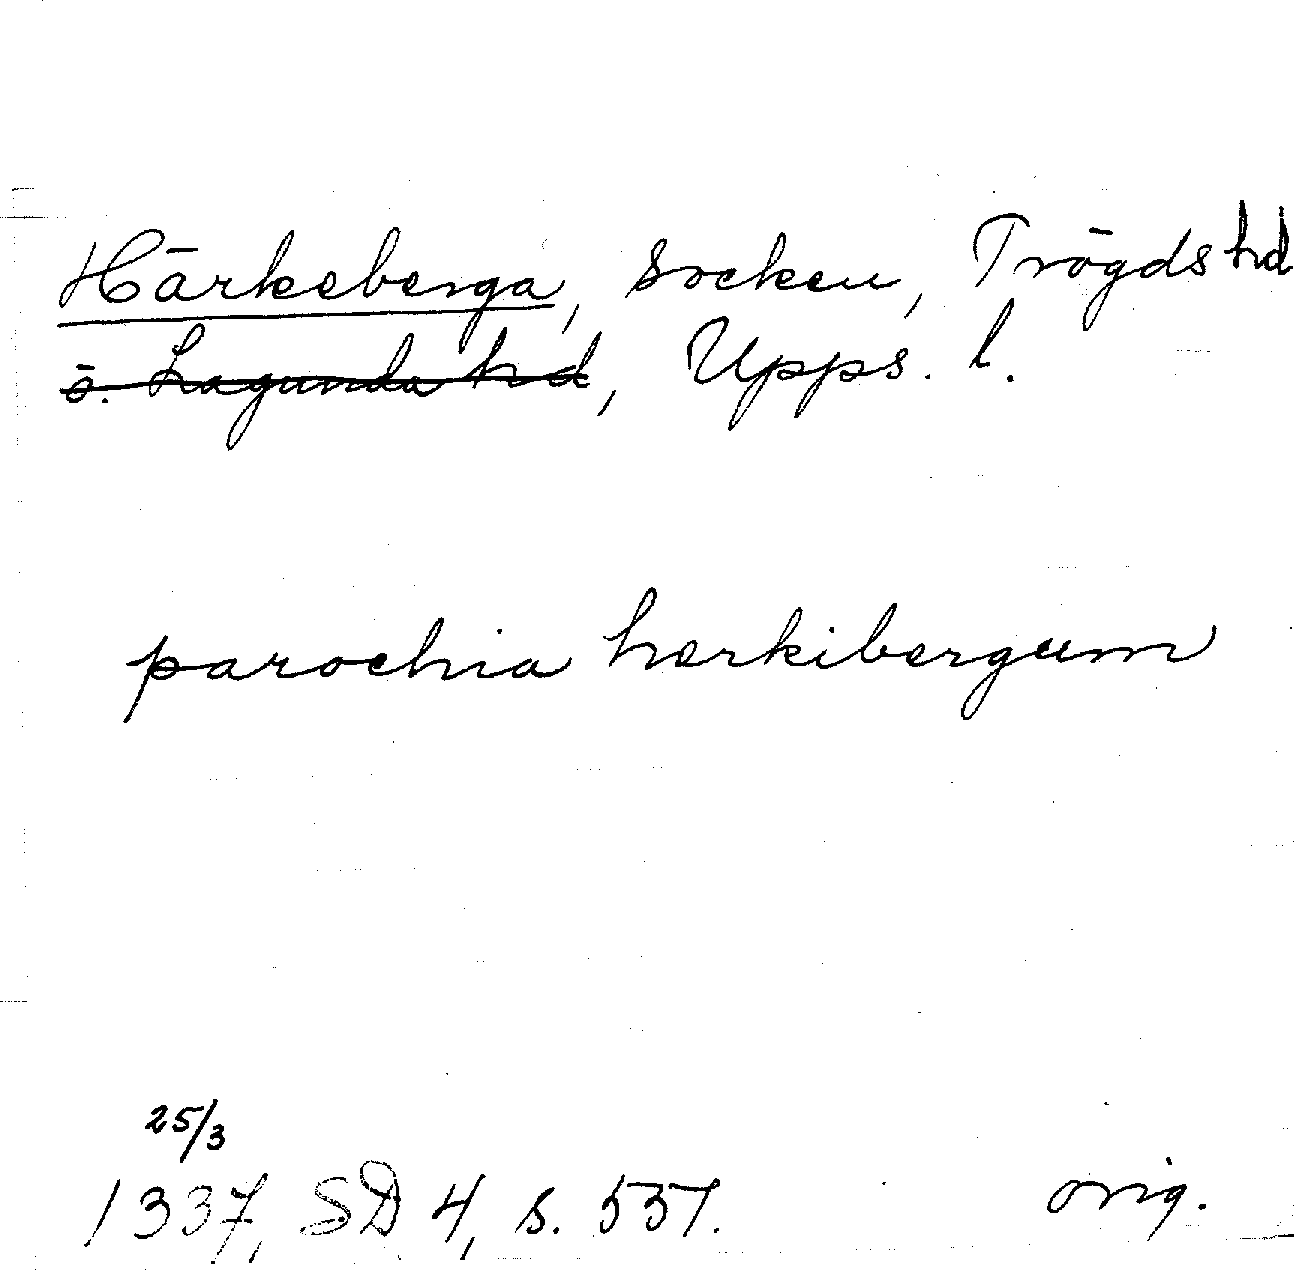 Härkeberga, socken, Trögds hd
ö. Lagunda hd, Upps. l.
parochia herkibergum
25/3
1337, SD 4, s. 537. orig.